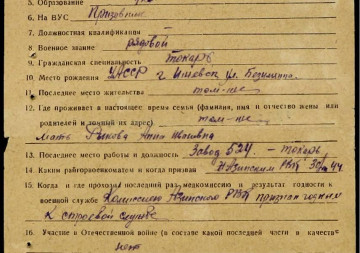 5. Образование
6. На ВУС Призывник
7. Должностная квалификация
8. Военное звание рядовой
9. Гражданская специальность токарь
10. Место рождения УАССР г Ижевск ул.
11. Последнее место жительства там-же
12. Где проживает в настоящее время семья (фамилия, имя и отчество жены или
родителей и точный их адрес) там-же
Мать Рыкова Анна Ивановна
13. Последнее место работы и должность Завод 524 - токарь
14. Каким райгорвоенкоматом и когда призван Азинским РВК 44
15. Когда и где проходил последний раз медкомиссию и результат годности к
военной службе Комиссией Азинского РВК признан годным
к строевой службе
16. Участие в Отечественной войне (в составе какой последней части и в качестве
нет